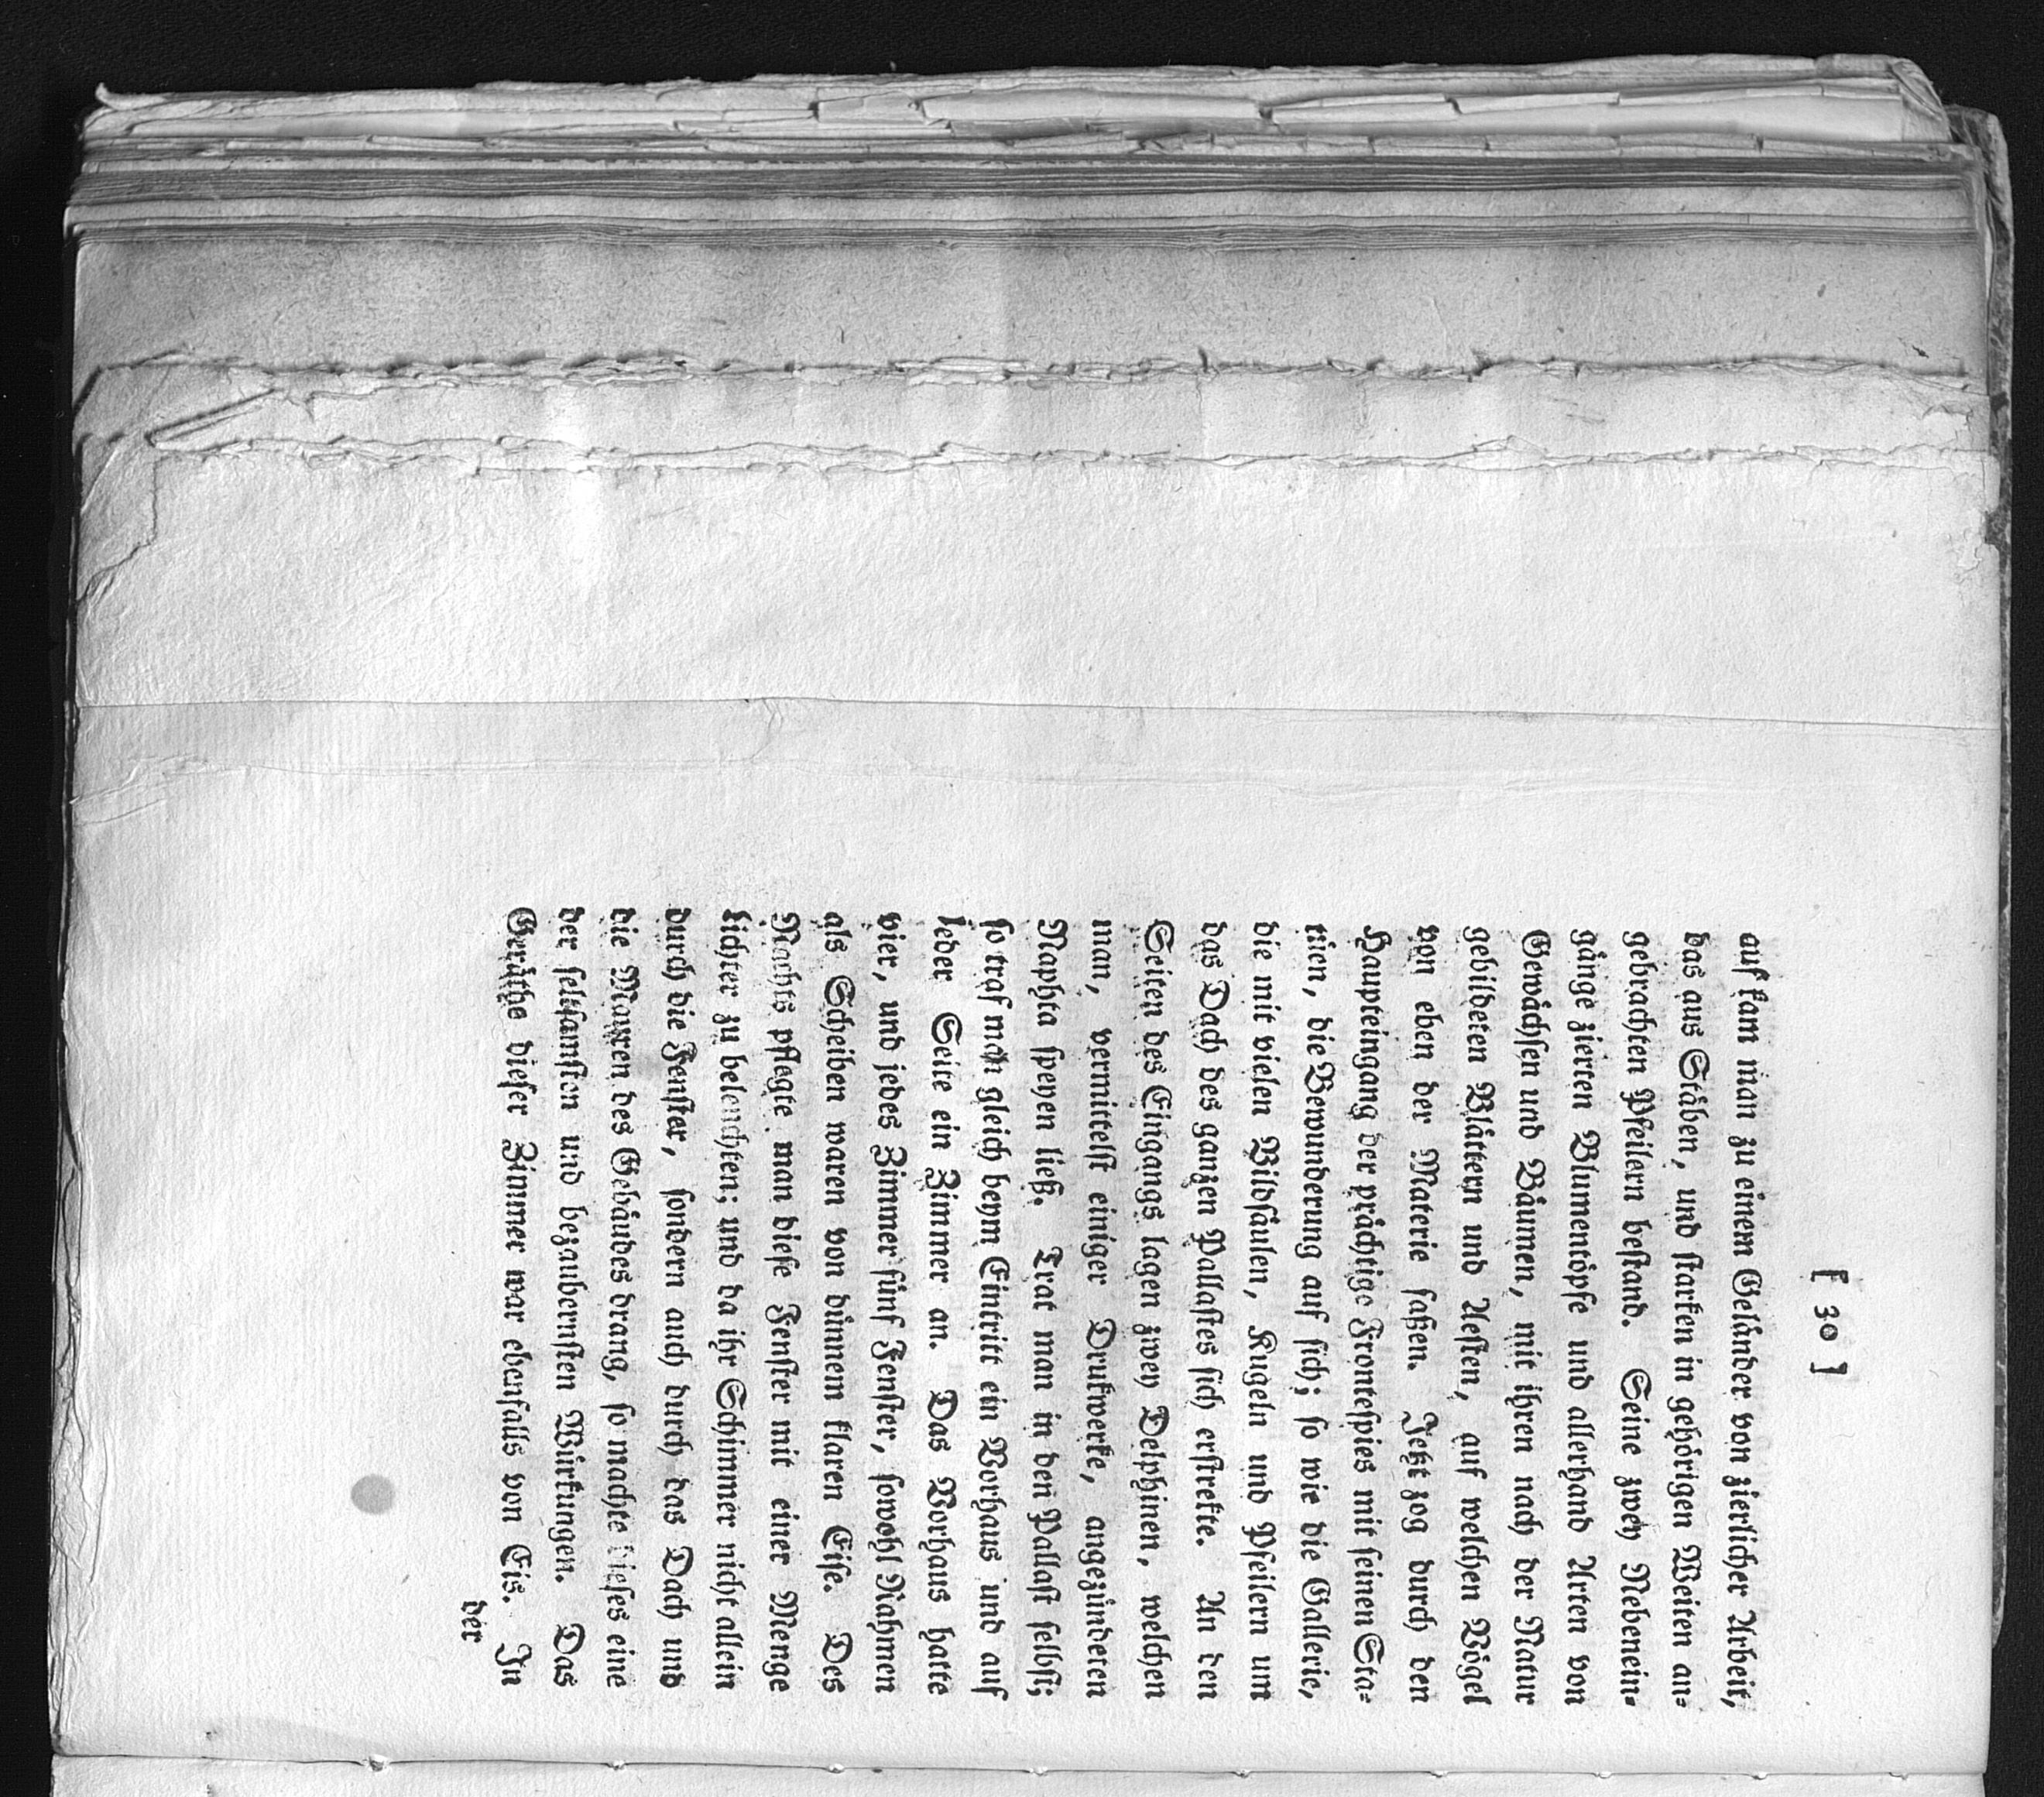 [ 30 ]
auf kam man zu einem Geländer von zierlicher Arbeit,
das aus Stäben, und starken in gehörigen Weiten an-
gebrachten Pfeilern bestand. Seine zwey Nebenein-
gänge zierten Blumentöpfe und allerhand Arten von
Gewächsen und Bäumen, mit ihren nach der Natur
gebildeten Blättern und Aesten, auf welchen Vögel
von eben der Materie saßen. Jetzt zog durch den
Haupteingang der prächtige Frontespies mit seinen Sta-
tüen, die Bewunderung auf sich; so wie die Gallerie,
die mit vielen Bildsäulen, Kugeln und Pfeilern um
das Dach des ganzen Pallastes sich erstrekte. An den
Seiten des Eingangs lagen zwey Delphinen, welchen
man, vermittelst einiger Drukwerke, angezündeten
Naphta speyen ließ. Trat man in den Pallast selbst;
so traf man gleich beym Eintritt ein Vorhaus und auf
jeder Seite ein Zimmer an. Das Vorhaus hatte
vier, und jedes Zimmer fünf Fenster, sowohl Rahmen
als Scheiben waren von dünnem klaren Eise. Des
Nachts pflegte man diese Fenster mit einer Menge
Lichter zu beleuchten; und da ihr Schimmer nicht allein
durch die Fenster, sondern auch durch das Dach und
die Mauren des Gebäudes drang, so machte dieses eine
der seltsamsten und bezaubernsten Wirkungen. Das
Geräthe dieser Zimmer war ebenfalls von Eis. In
der